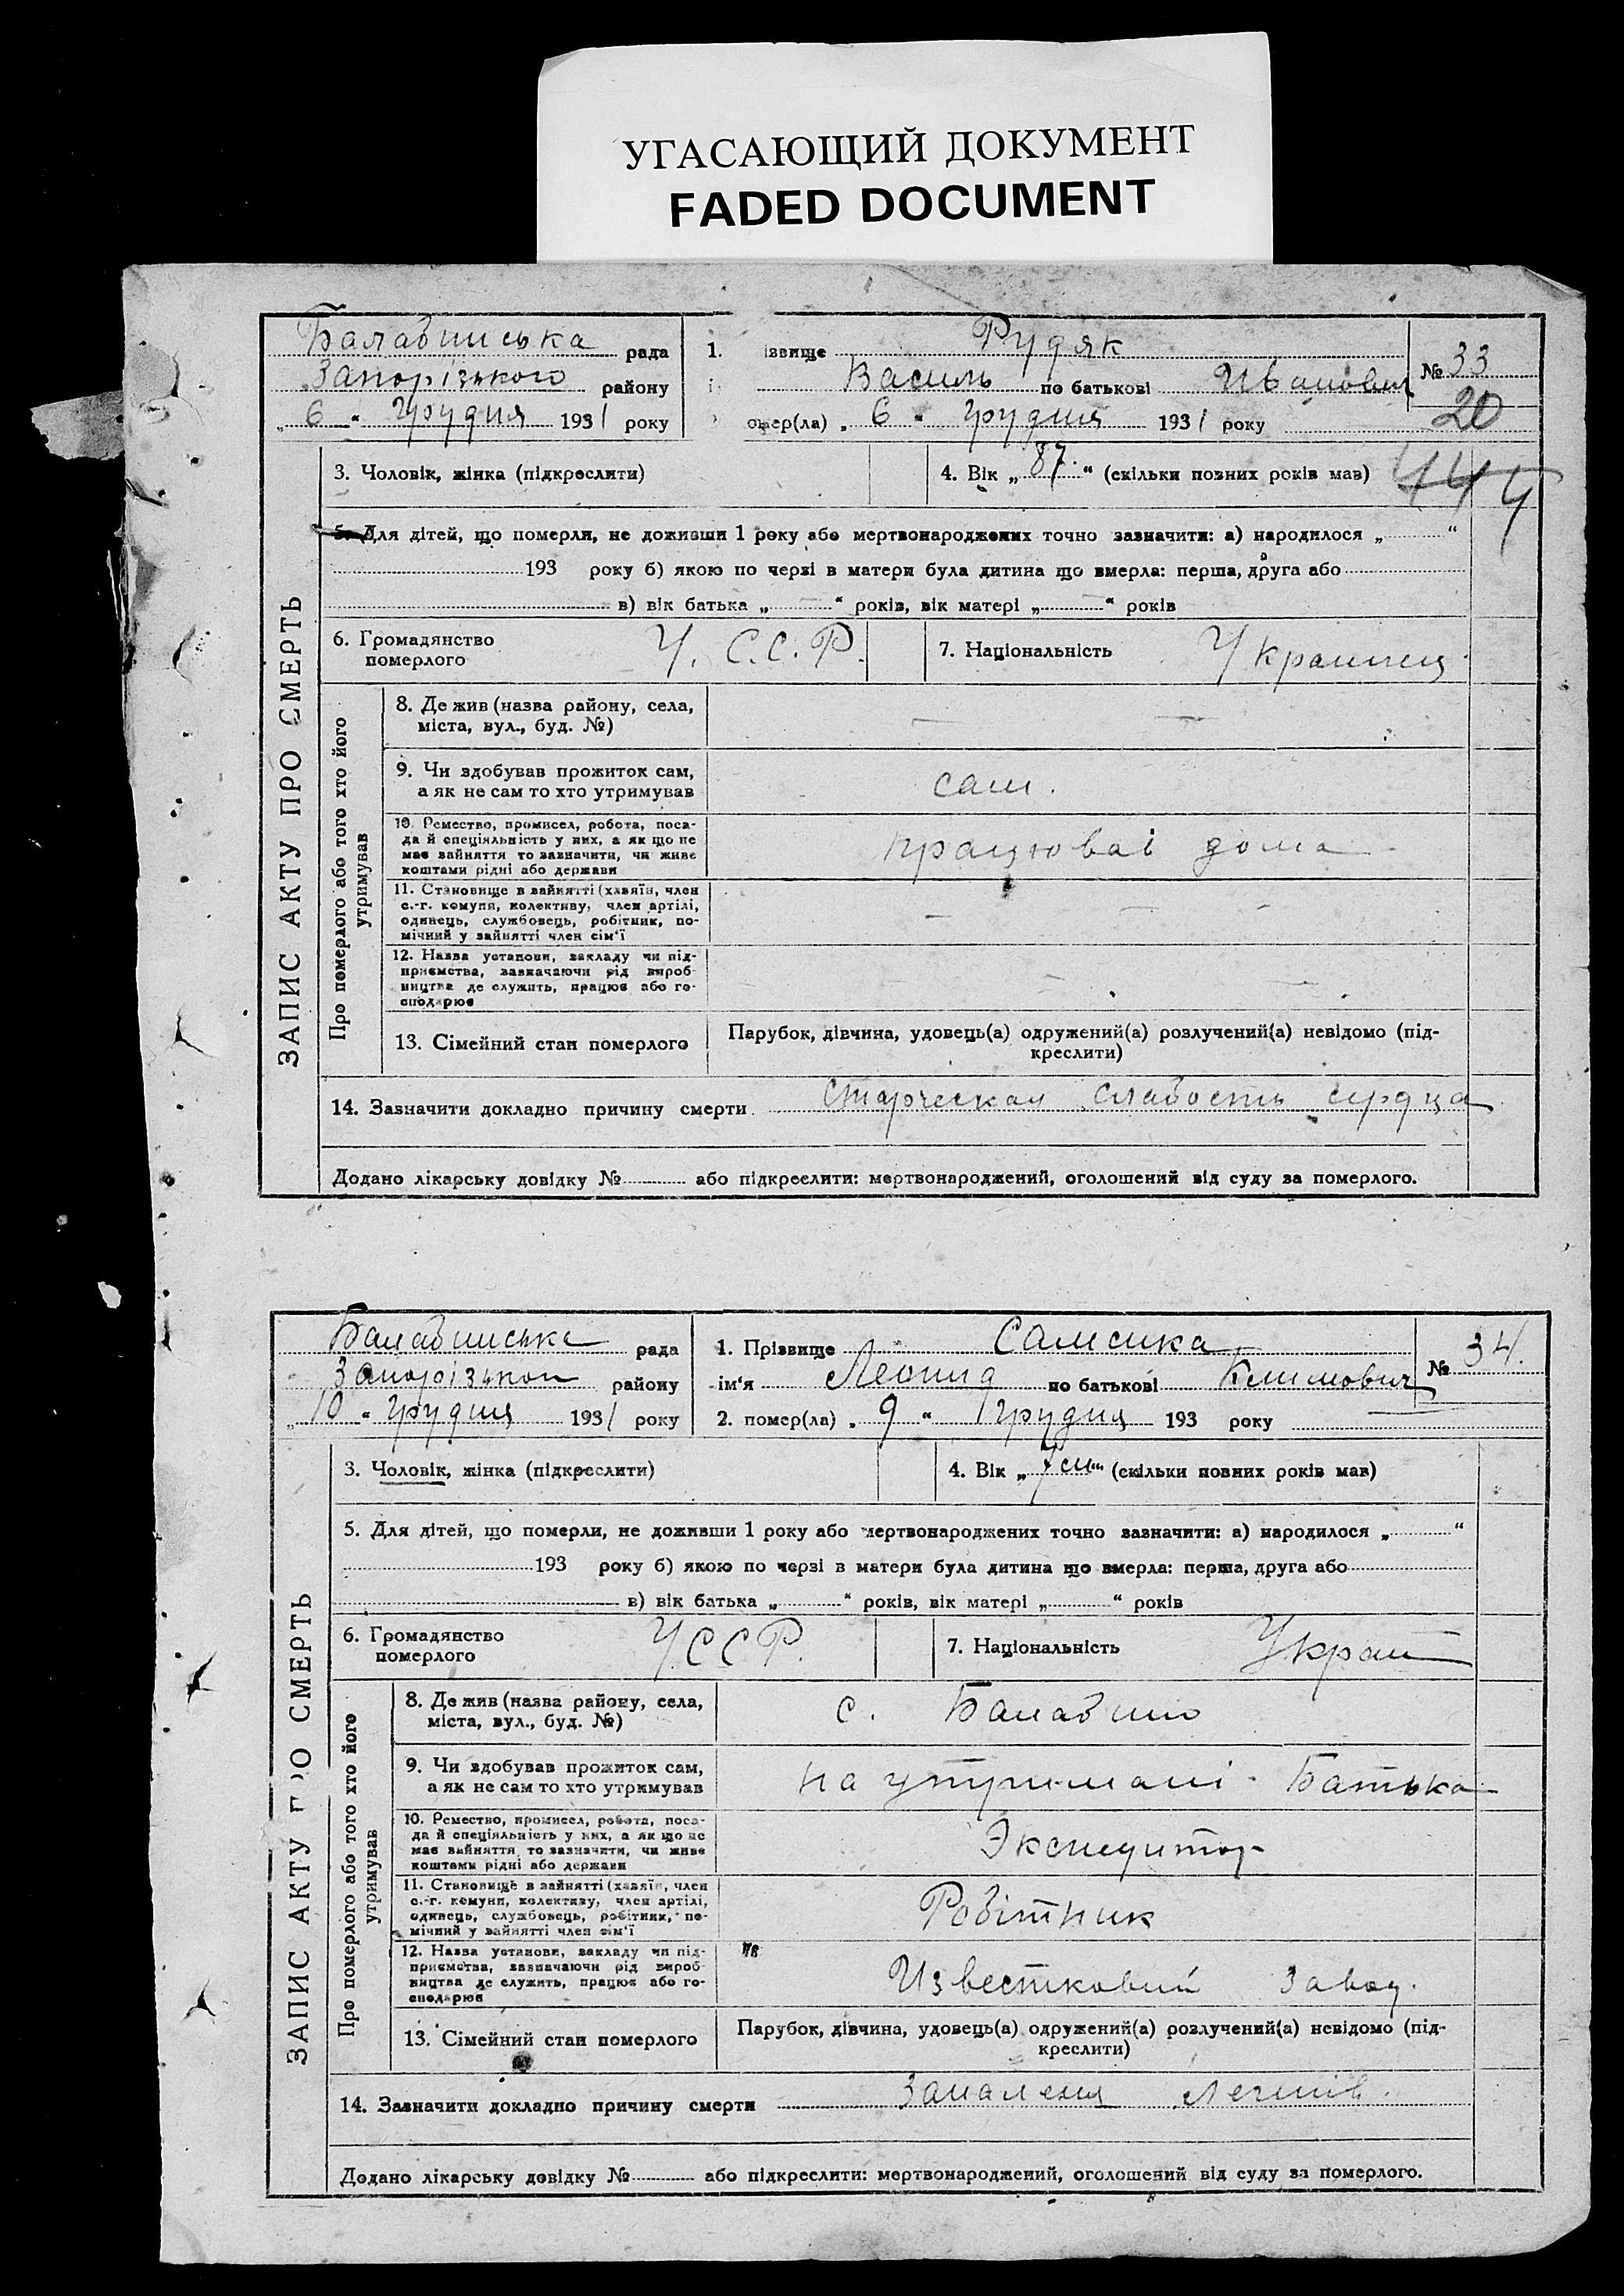 УГАСАЮЩИЙ ДОКУМЕНТ
FADED DOCUMENT
Балабинська рада
Запорізького району
„ 6 “ грудня 1931 року
1. ізвище Рудяк
Василь по батькові Иванович
омер(ла) „ 6 “ грудня 1931 року
№ 33
20
3. Чоловік, жінка (підкреслити)
4. Вік „ 87. “ (скільки повних років мав)
5. Для дітей, що померли, не доживши 1 року або мертвонароджених точно зазначити: а) народилося „ “
193 року б) якою по черзі в матери була дитина що вмерла: перша, друга або
в) вік батька „ “ років, вік матері „ “ років
6. Громадянство
померлого
У. С.С.Р.
7. Національність Украинец
ЗАПИС АКТУ ПРО СМЕРТЬ
Про померлого або того хто його
утримував
8. Де жив (назва району, села,
міста, вул., буд. №)
9. Чи здобував прожиток сам,
а як не сам то хто утримував
сам.
10. Ремество, промисел, робота, поса-
да й спеціяльність у них, а як що не
має зайняття то зазначити, чи живе
коштами рідні або держави
працював дома
11. Становище в зайнятті (хазяїн, член
с.-г. комуни, колективу, член артілі,
одинець, службовець, робітник, по-
мічний у зайнятті член сім‘ї
12. Назва установи, закладу чи під-
приємства, зазначаючи рід вироб-
ництва де служить, працює або го-
сподарює
13. Сімейний стан померлого
Парубок, дівчина, удовець(а) одружений(а) розлучений(а) невідомо (під-
креслити)
14. Зазначити докладно причину смерти Старческая слабость сердца
Додано лікарську довідку № або підкреслити: мертвонароджений, оголошений від суду за померлого.
Балабинська рада
району
„ 10 “ грудня 1931 року
1. Прізвище Самсика
ім‘я Леонид по батькові Климович
2. помер(ла) „ 9 “ грудня 193 року
№ 34.
3. Чоловік, жінка (підкреслити)
4. Вік „ “ (скільки повних років мав)
5. Для дітей, що померли, не доживши 1 року або мертвонароджених точно зазначити: а) народилося „ “
193 року б) якою по черзі в матери була дитина що вмерла: перша, друга або
в) вік батька „ “ років, вік матері „ “ років
6. Громадянство
померлого
УССР.
7. Національність Украї
ЗАПИС АКТУ ПРО СМЕРТЬ
Про померлого або того хто його
утримував
8. Де жив (назва району, села,
міста, вул., буд. №)
с. Балабино
9. Чи здобував прожиток сам,
а як не сам то хто утримував
на утримані Батька
10. Ремество, промисел, робота, поса-
да й спеціяльність у них, а як що не
має зайняття то зазначити, чи живе
коштами рідні або держави
Экспедитор
11. Становище в зайнятті (хазяїн, член
с.-г. комуни, колективу, член артілі,
одинець, службовець, робітник, по-
мічний у зайнятті член сім‘ї
Робітник
12. Назва установи, закладу чи під-
приємства, зазначаючи рід вироб-
ництва де служить, працює або го-
сподарює
Известковий завод.
13. Сімейний стан померлого
Парубок, дівчина, удовець(а) одружений(а) розлучений(а) невідомо (під-
креслити)
14. Зазначити докладно причину смерти Запаленя легенів.
Додано лікарську довідку № або підкреслити: мертвонароджений, оголошений від суду за померлого.